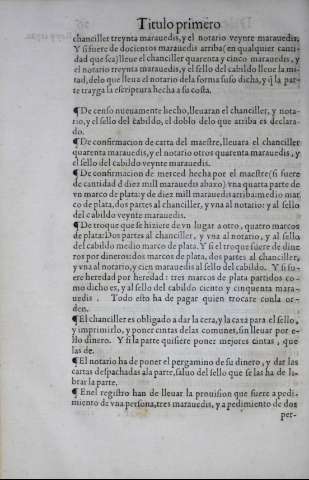 Titulo primero
chanciller treynta marauedis, y el notario veynte marauedis.
Y si fuere de docientos marauedis arriba (en qualquier canti-
dad que sea) lleue el chanciller quarenta y cinco marauedis, y
el notario treynta marauedis, y el sello del cabildo lleue la mi-
tad, delo que lleua el notario dela forma suso dicha, y q̃ la par-
te trayga la escriptura hecha a su costa.
¶ De censo nueuamente hecho, lleuaran el chanciller, y nota-
rio, y el sello del cabildo, el doblo delo que arriba es declara-
do.
¶ De confirmacion de carta del maestre, lleuara el chanciller
quarenta marauedis, y el notario otros quarenta marauedis, y
el sello del cabildo veynte marauedis.
¶ De confirmacion de merced hecha por el maestre (si fuere
de cantidad d diez mill marauedis abaxo) vna quarta parte de
vn marco de plata: y de diez mill marauedis arriba: medio mar
co de plata, dos partes al chanciller, y vna al notario: y al sello
del cabildo veynte marauedis.
¶ De troque que se hiziere de vn lugar a otro, quatro marcos
de plata: Dos partes al chanciller, y vna al notario, y al sello
del cabildo medio marco de plata. Y si el troque fuere de dine
ros por dineros: dos marcos de plata, dos partes al chanciller,
y vna al notario, y cien marauedis al sello del cabildo. Y si fu-
ere heredad por heredad: tres marcos de plata partidos co-
mo dicho es, y al sello del cabildo ciento y cinquenta mara-
uedis. Todo esto ha de pagar quien trocare conla or-
den.
¶ El chanciller es obligado a dar la cera, y la caxa para el sello,
y imprimirlo, y poner cintas delas comunes, sin lleuar por e-
llo dinero. Y si la parte quisiere poner mejores cintas, que
las de.
¶ El notario ha de poner el pergamino de su dinero, y dar las
cartas despachadas ala parte, saluo del sello que se las ha de li-
brar la parte.
¶ Enel registro han de lleuar la prouision que fuere a pedi-
miento de vna persona, tres marauedis, y a pedimiento de dos
per-